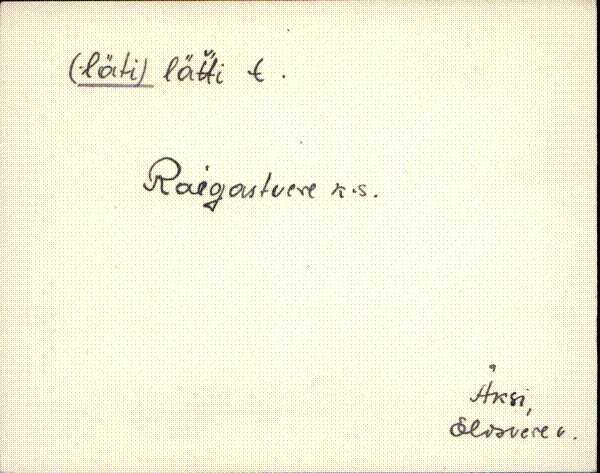 (läti) lätti t.
Raigastvere k.s.
Äksi,
Elistvere v.